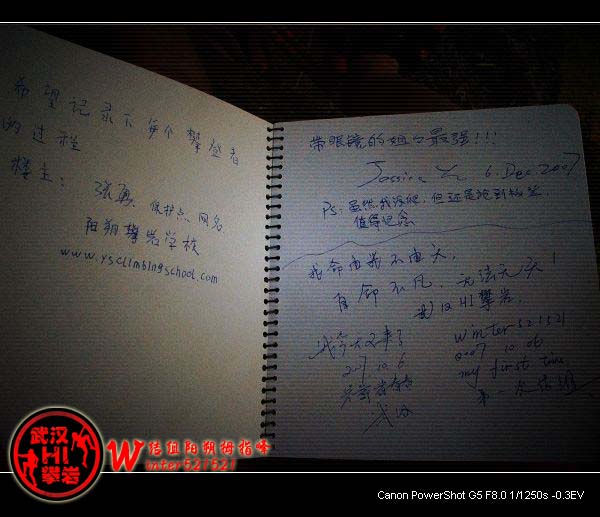 希望记录下每个攀登者
的过程
楼主：张勇 保护点 网名
阳朔攀岩学校
www.ysclimbingschool.com
带眼镜的姐姐最强!!!
Jessica 6.Dec.2007
Ps: 虽然我没爬，但还是
值得纪念
我命由我不由天，
自命不凡，无法无天！
武汉HI攀岩
我今天又来了
2007.10.6
武汉
winter521521
2007 10 06
my first time
第一次结组
武汉
HI
攀岩
Winter521521
结组阳朔拇指峰
Canon PowerShot G5 F8.0 1/1250s -0.3EV